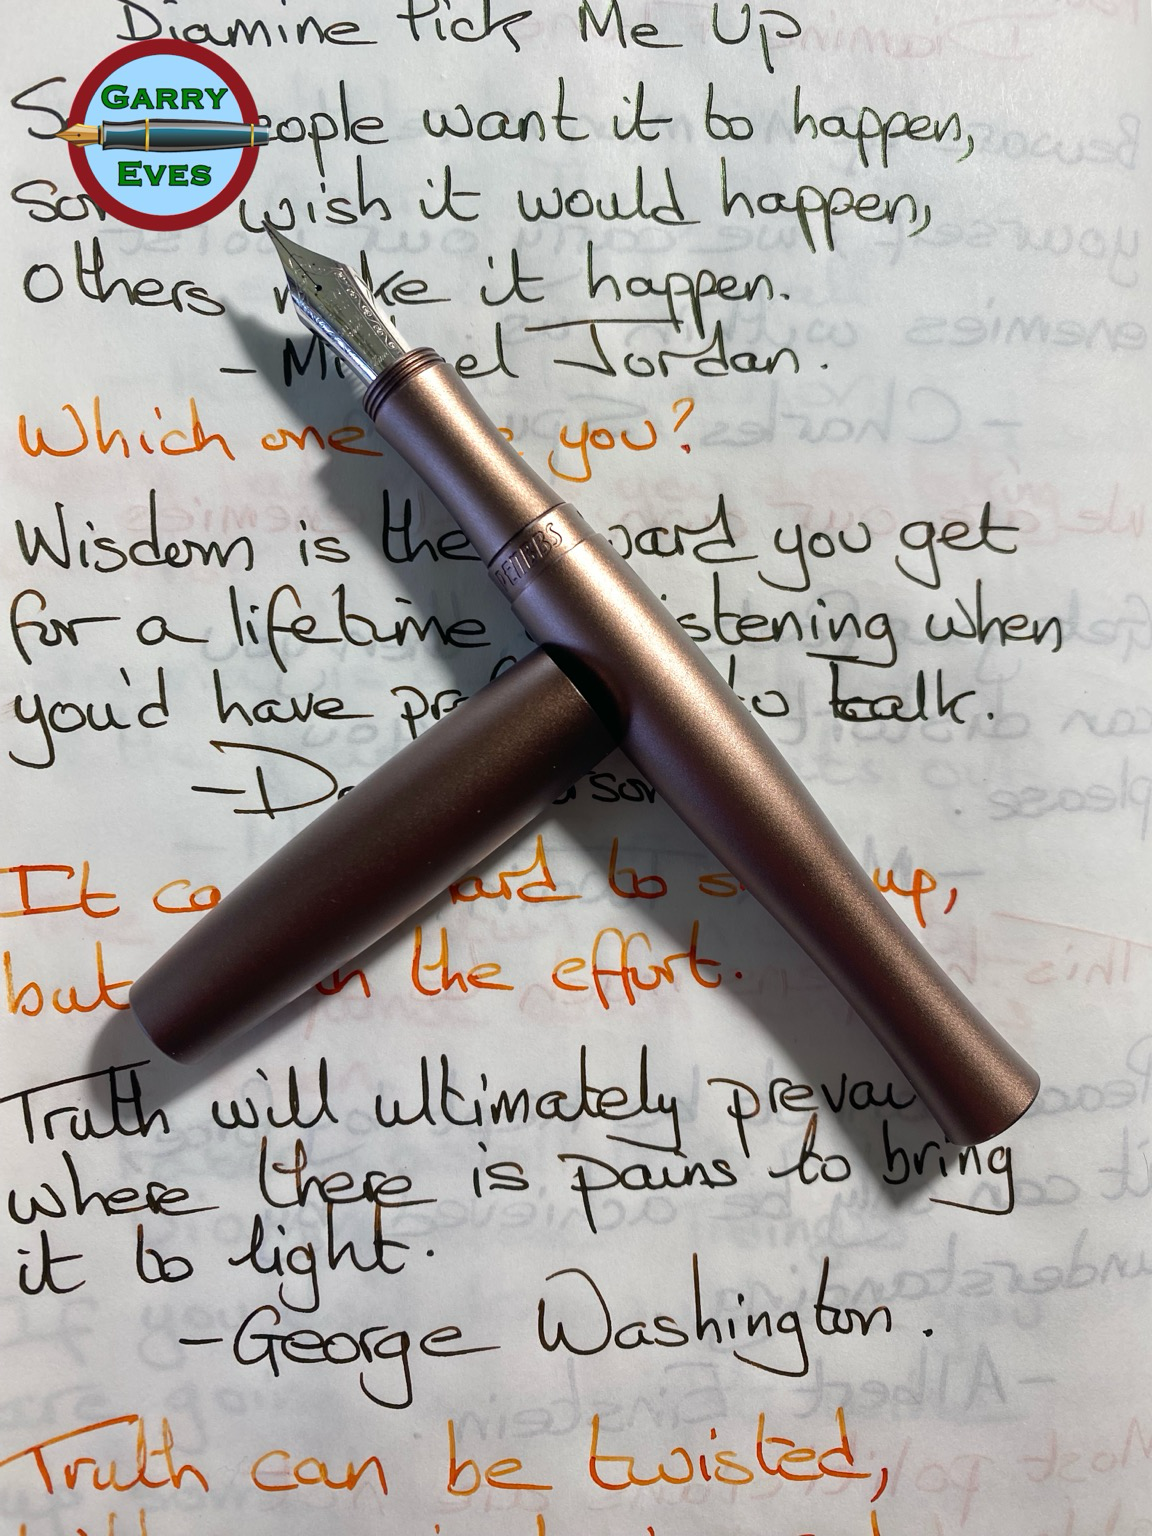 Diamine Pick Me Up
GARRY
EVES
people want it to happen,
wish it would happen,
others it happen.
- Jordan.
Which one you?
Wisdom is the you get
for a lifetime listening when
you'd have to talk.
It hard to up,
but the effort.
Truth will ultimately
where there is pains to bring
it to light.
-George Washington.
Truth can be twisted,